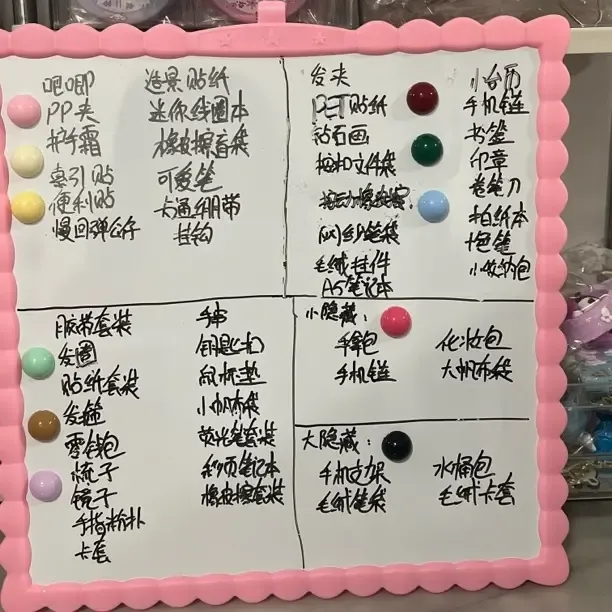 吧唧
PP夹
护手霜
索引贴
便利贴
慢回弹公仔
造景贴纸
迷你线圈本
橡皮擦盲袋
可爱笔
卡通绷带
挂钩
发夹
PET贴纸
钻石画
按扣文件袋
按动橡皮擦
网纱笔袋
毛绒挂件
A5笔记本
小台历
手机链
书签
印章
卷笔刀
拍纸本
小收纳包
胶带套装
发圈
贴纸套装
发箍
零钱包
梳子
镜子
手指粉扑
卡套
手串
钥匙扣
鼠标垫
小帆布袋
荧光笔套装
橡皮擦套装
小隐藏:
手拿包
手机链
化妆包
大帆布袋
大隐藏:
手机支架
毛绒笔袋
水桶包
毛绒卡套